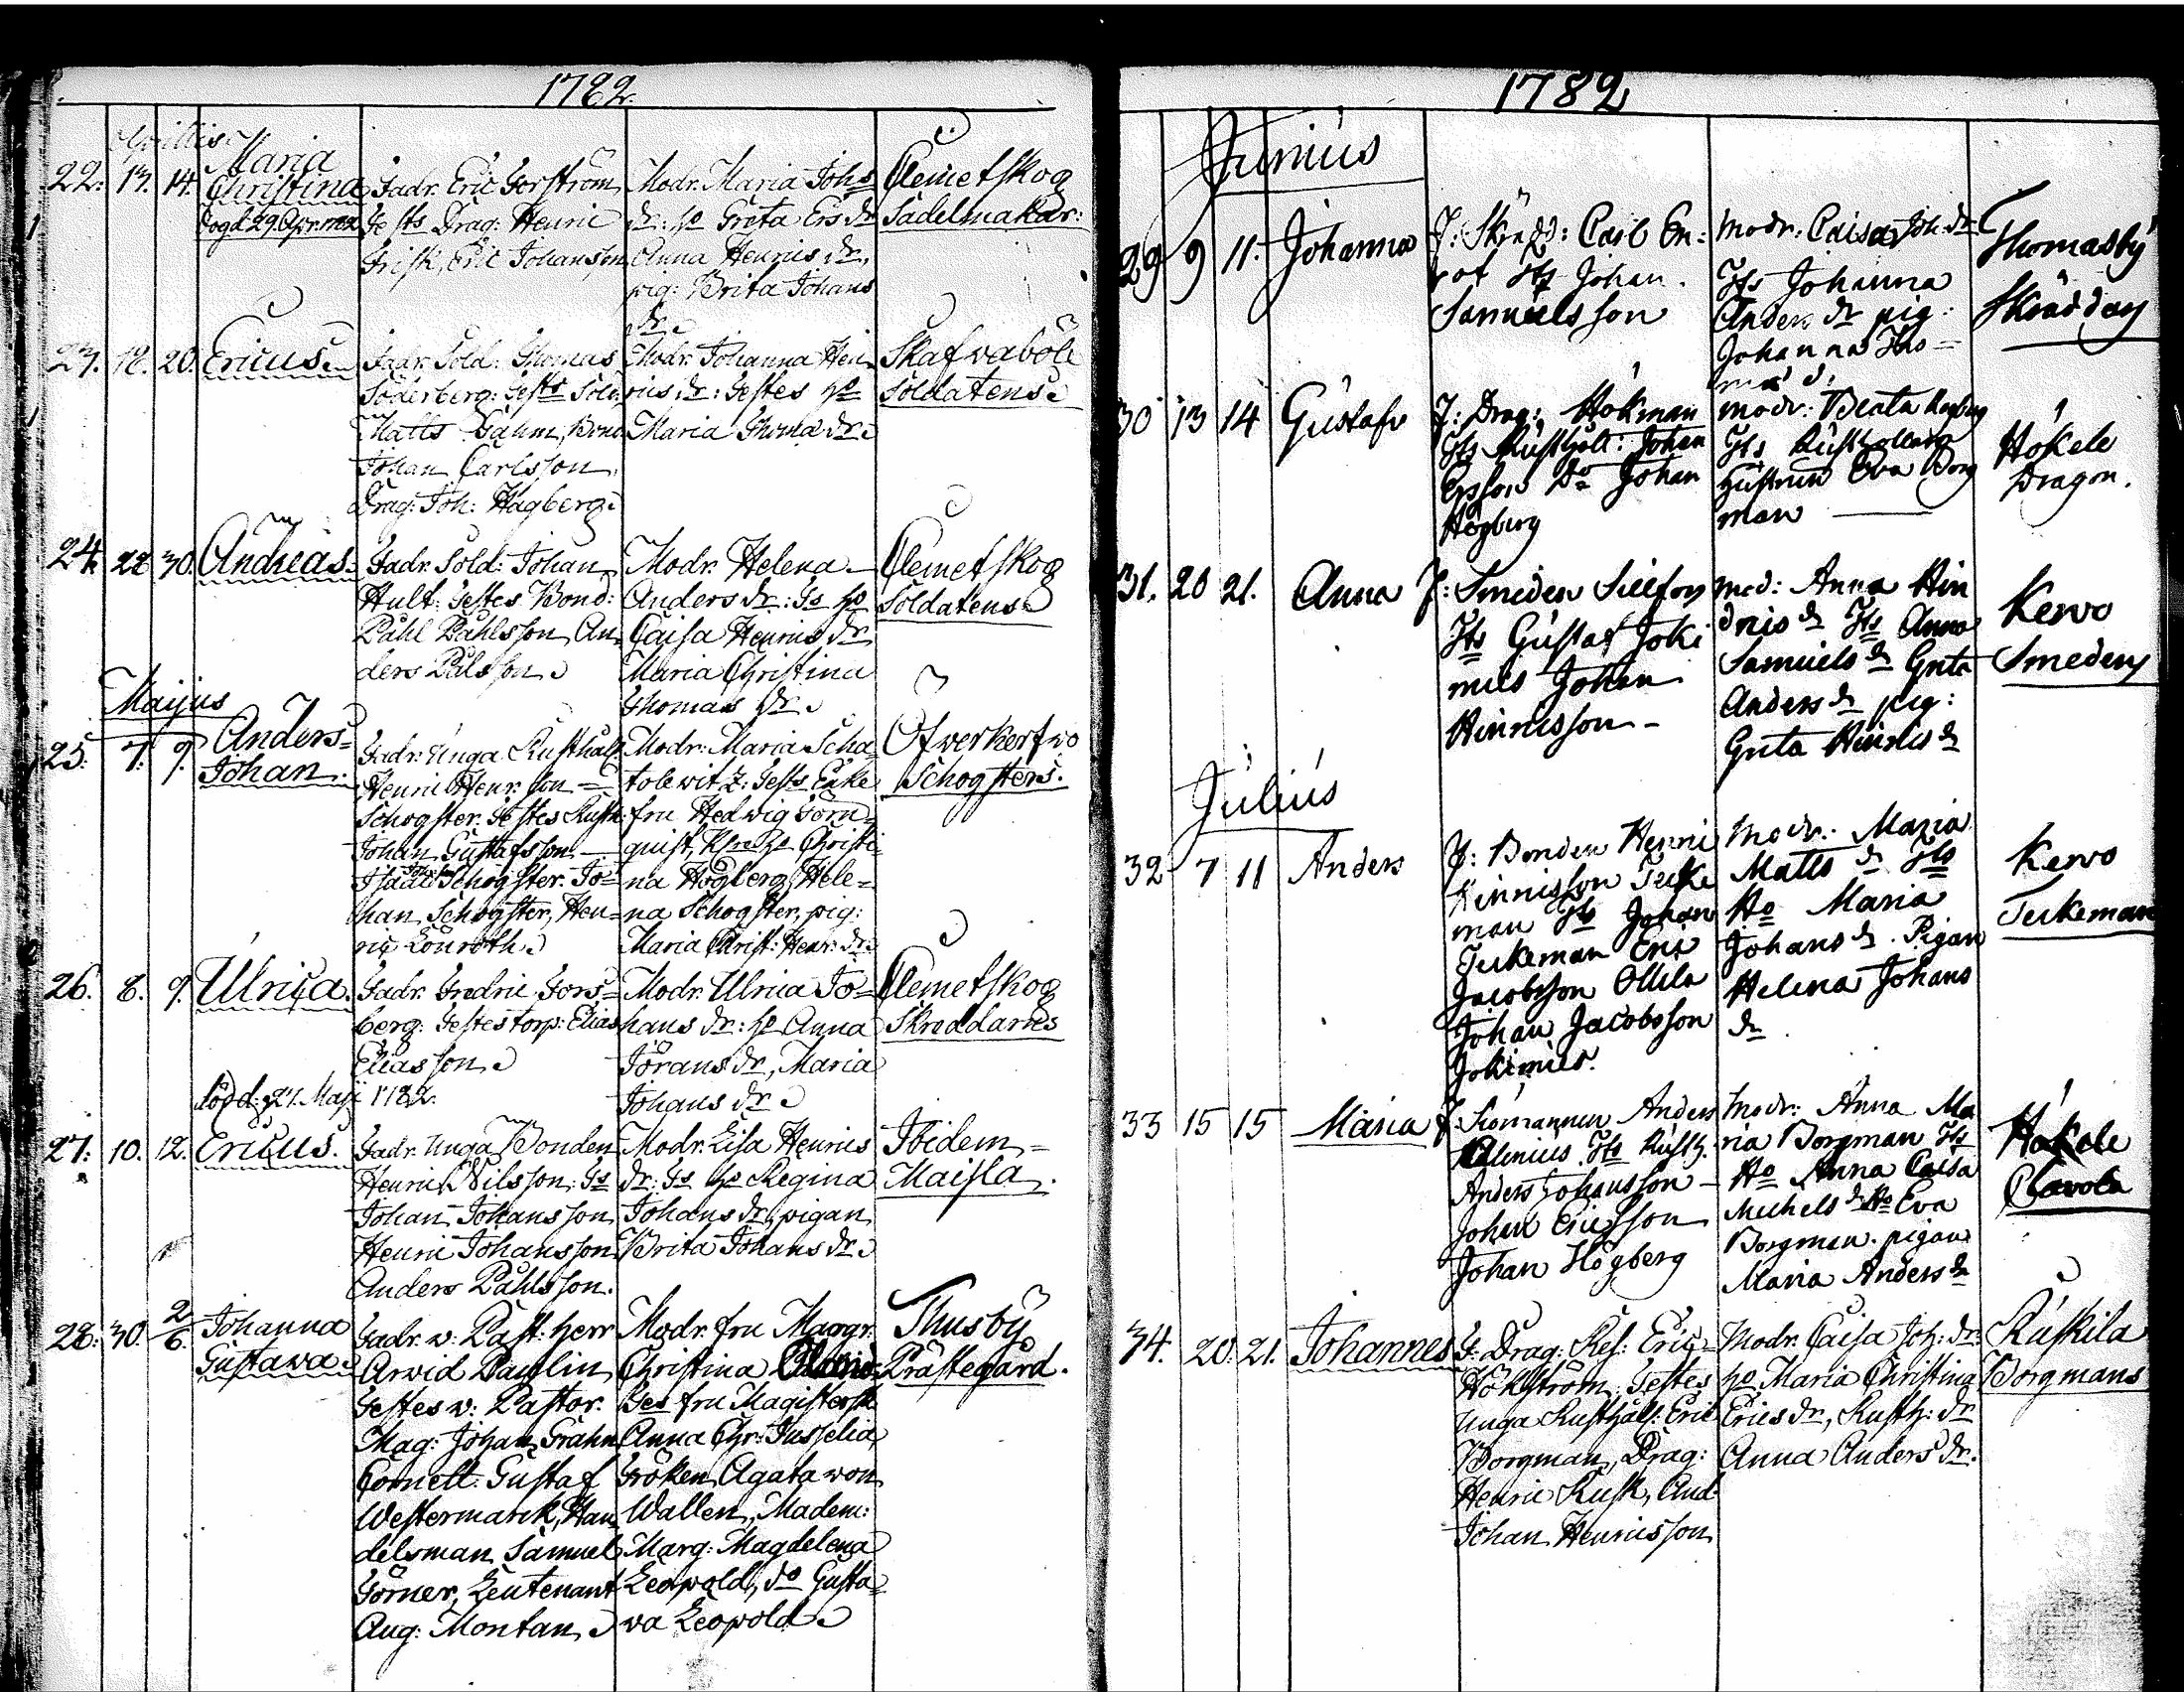 1782.
Aprillis.
22. 13. 14. Maria
Christina
Fadr. Eric Forström
Testes Drag: Henric
Frisk, Eric Johanson
Modr. Maria Johs
dr: ho Greta Ers dr
Anna Henris dr,
pig: Brita Johans
dr
Clemetskog
Sadelmakar:
23. 18. 20. Ericus
Fadr. Sold: Thomas
Söderberg: Testes Sold:
Matts Dahm, Bond
Johan Carlsson,
Drag: Joh: Hagberg
Modr. Johanna Hen
rics dr: Testes ho
Maria Thoma dr
Skafvaböle
Soldatens
24. 28 30. Andreas
Fadr. Sold: Johan
Hult: Testes Bond:
Påhl Påhlsson, An
ders Pålsson
Modr. Helena
Anders dr: Ts ho
Caisa Henrics dr
Maria Christina
Thomas dr
Clemetskog
Soldatens
Majus
25. 7. 9. Anders
Johan.
Fadr. Unga Rusthåll:
Henric Henr:son
Schogster. Testes Rusth:
Johan Gustafsson
Isaac Schogster. Jo=
han Schogster, Hen=
ric Lönroth
Modr. Maria Scha
tolewitz: Tests Enke
fru Hedwig Törn=
quist, Christi
na Högberg, Hele=
na Schogster, pig:
Maria Christ: Henr: dr
Ofverkerfwo
Schogsters.
26. 8. 9. Ulrica.
Fadr. Fredric Fors=
berg: Testes torp: Elias
Eliasson
Modr. Ulrica Jo=
hans dr: ho Anna
Jörans dr, Maria
Johans dr
Clemetskog
Skroddares
död: 27. Maji 1782.
27. 10. 12. Ericus.
Fadr. Unga Bonden
Henric Nilsson: Ts
Johan Johansson
Henric Johansson
Anders Påhlsson.
Modr. Lisa Henrics
dr: Ts ho Regina
Johans dr, pigan
Brita Johans dr
Ibidem
Maisla.
28. 30. 2/6. Johanna
Gustava
Fadr. v: Past: herr
Arwid Paulin
Testes v: Pastor.
Mag: Johan Grahn
Cornett: Gustaf
Westermark, Han
delsman Samuel
Törner, Leutenant
Aug: Montan
Modr. fru Margr:
Christina
Tes fru Magistersk
Anna Chr: Jusselia,
fröken Agata won
Wallen, Madem:
Marg: Magdelena
Leopold, do Gusta=
va Leopold
Thusby
Prästegård.
1782
Junius
29 9 11. Johanna
F: Skrädd: Carl En=
rot Ts Johan
Samuelsson
Modr. Caisa Joh: dr
Ts Johanna
Anders dr pig:
Johanna Tho
mas d.
Thomasby
Skräddar
30 13 14 Gustafv
F: Drag: Hökman
Ts Rusthåll: Johan
Ersson Do Johan
Högberg
modr: Beata Hagberg
Ts Rusthållars
Hustrun Eva Borg
man
Hökele
Dragon.
31. 20 21. Anna
F: Smeden Sillfors
Ts Gustaf Joki
mies Johan
Hinricsson
mod: Anna Hin
drics dr Ts Anna
Samuels dr Greta
Anders dr pig:
Greta Hinrics dr
Kerwo
Smedens
Julius
32 7 11 Anders
F: Bonden Henric
Hinricsson Teuke
man Ts Johan
Teukeman Eric
Jacobsson Ollila
Johan Jacobsson
Jokimies.
Modr. Maria
Matts dr Ts
Ho Maria
Johans dr. Pigan
Helena Johans
dr
Kerwo
Teukeman
33 15 15 Maria
F: Siömannen Anders
Alenius Ts Rusth.
Anders Johansson
Johan Ericsson
Johan Högberg
Modr: Anna Ma
ria Borgman Ts
Ho Anna Caisa
Michels dr Ho Eva
Borgman. pigan
Maria Anders dr
Hökele
Clavola
34. 20. 21. Johannes
F: Drag: Res: Eric
Höhlström: Testes
Unga Rusthåll: Eric
Borgman, Drag:
Henric Rusk, And
Johan Henricsson
Modr. Caisa Joh: dr:
ho Maria Christina
Erics dr, Rusth: dr
Anna Anders dr.
Ruskila
Borgmans